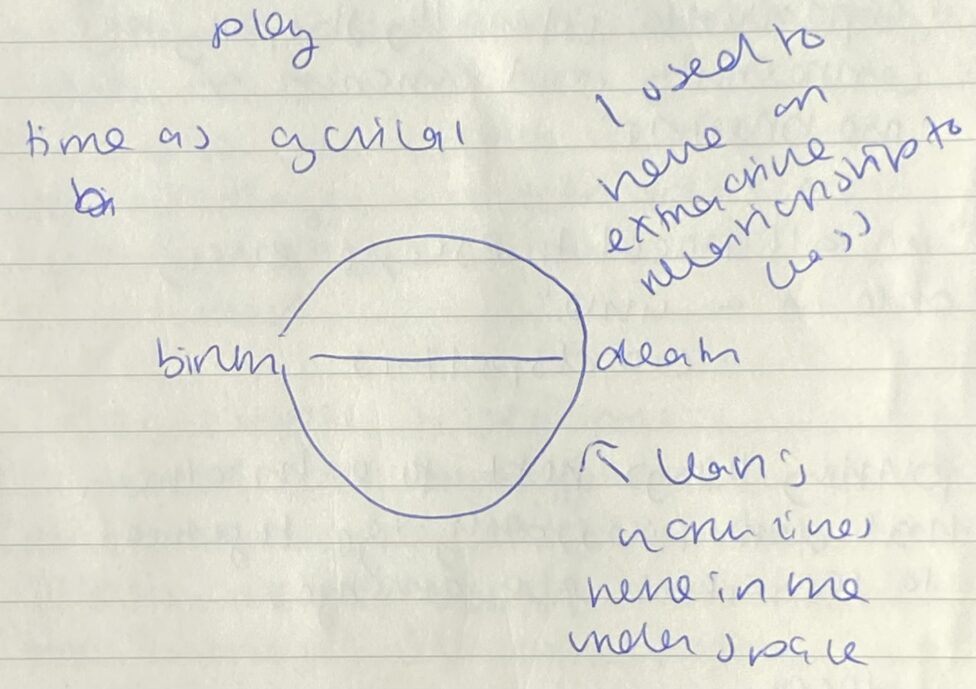 play
time as cyclical
bi
I used to
have an
extractive
relationship to
class
birth
death
↑ Clay
here in the
under space